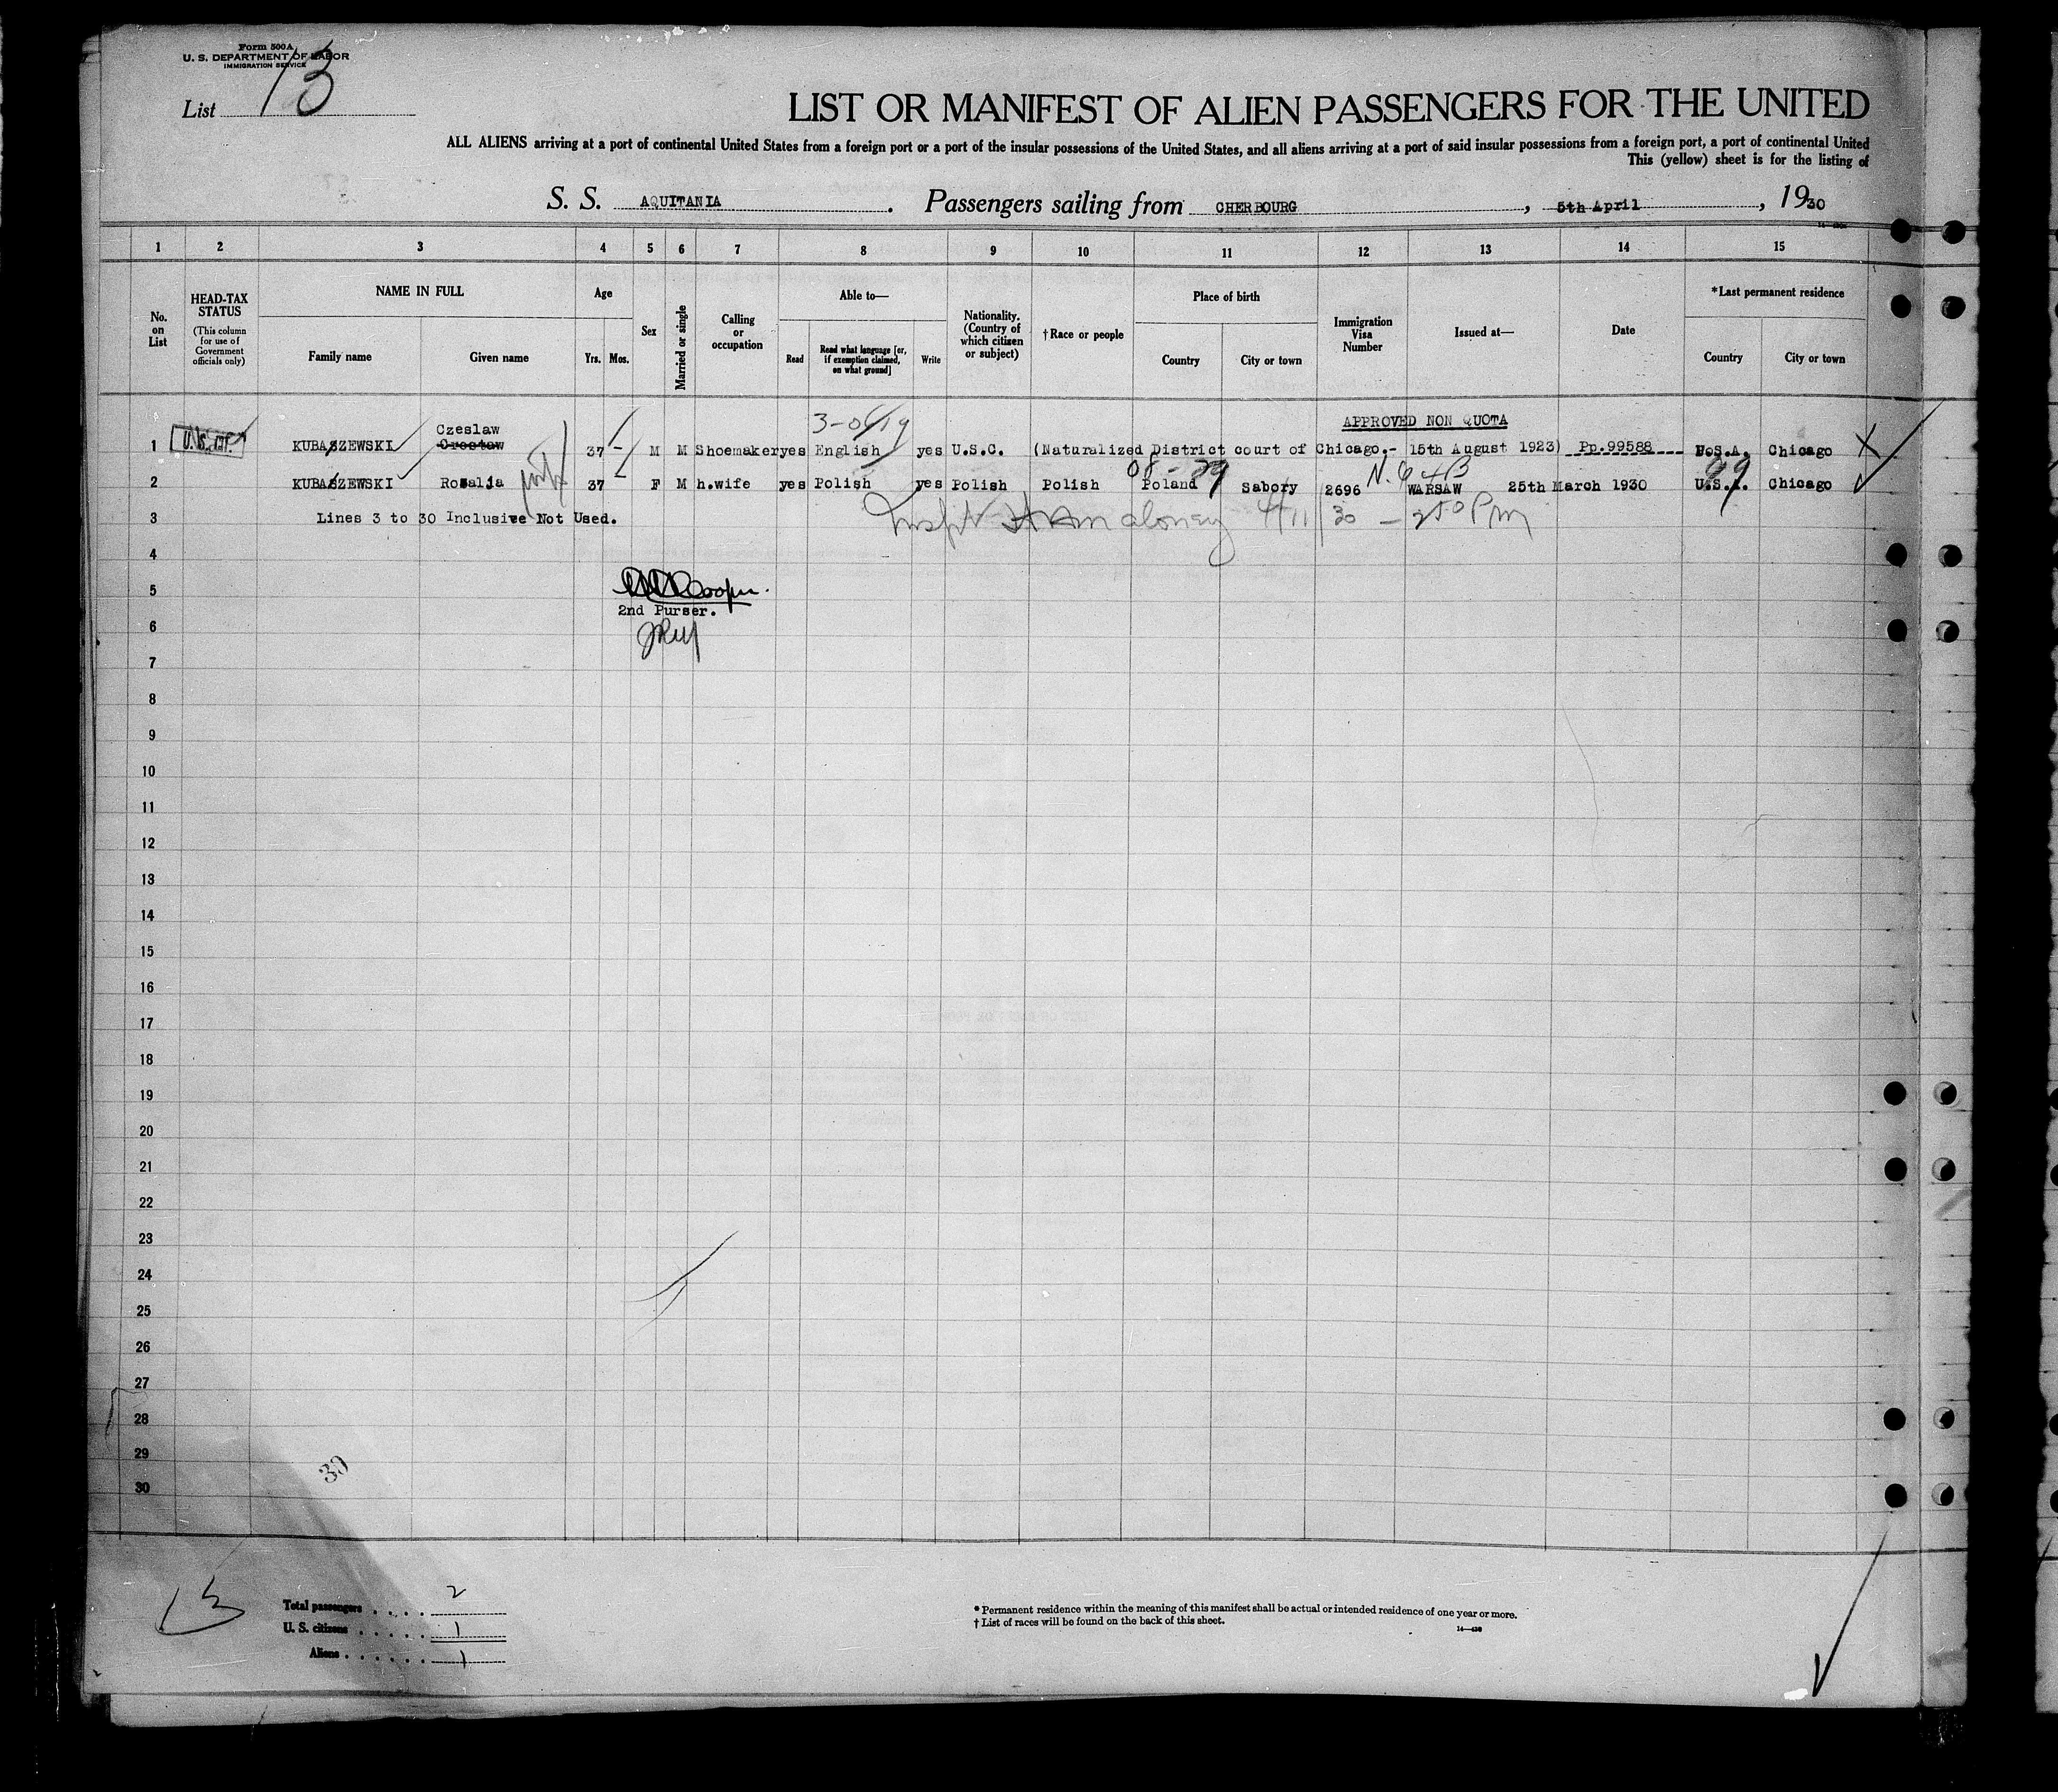 Form 500A
U. S. DEPARTMENT OF LABOR
IMMIGRATION SERVICE
List 13
LIST OR MANIFEST OF ALIEN PASSENGERS FOR THE UNITED
ALL ALIENS arriving at a port of continental United States from a foreign port or a port of the insular possessions of the United States, and all aliens arriving at a port of said insular possessions from a foreign port, a port of continental United
This (yellow) sheet is for the listing of
S. S. AQUITANIA. Passengers sailing from CHERBOURG, 5th April, 1930
1 2 3 4 5 6 7 8 9 10 11 12 13 14 15
No. on List
HEAD-TAX STATUS (This column for use of Government officials only)
NAME IN FULL
Family name
Given name
Age
Yrs. Mos.
Sex
Married or single
Calling or occupation
Able to—
Read
Read what language [or, if exemption claimed, on what ground]
Write
Nationality. (Country of which citizen or subject)
†Race or people
Place of birth
Country
City or town
Immigration Visa Number
Issued at—
Date
*Last permanent residence
Country
City or town
Czeslaw 3- APPROVED NON QUOTA
1 U.S. CIT. KUBASZEWSKI 37 - M M Shoemaker yes English yes U.S.C. (Naturalized District court of Chicago.- 15th August 1923) Pp.99588 U.S.A. Chicago X
08-29 99
2 KUBASZEWSKI Rosalia 37 - F M h.wife yes Polish yes Polish Polish Poland Sabory 2696 WARSAW 25th March 1930 U.S.A. Chicago
3 Lines 3 to 30 Inclusive Not Used. 4/11/30 - 250 Pm
4
5 Cooper.
2nd Purser.
6
7
8
9
10
11
12
13
14
15
16
17
18
19
20
21
22
23
24
25
26
27
28
29
30
39
13
Total passengers . . . . 2
U. S. citizens . . . . . 1
Aliens . . . . . . 1
* Permanent residence within the meaning of this manifest shall be actual or intended residence of one year or more.
† List of races will be found on the back of this sheet.
14—430